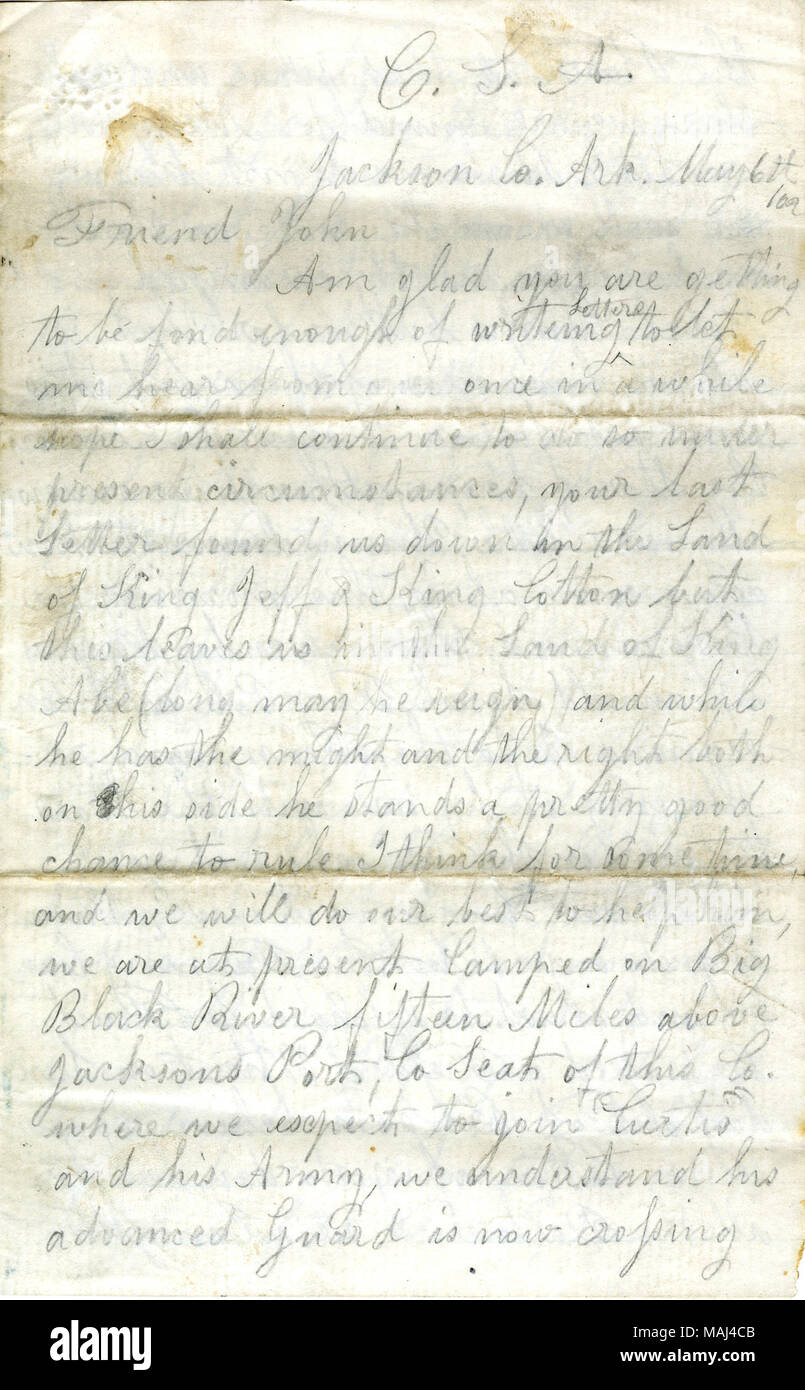 C. S. A.
Jackson Co. Ark. May 6th
Friend John
Am glad you are getting
to be fond enough of writeing Letters to let
me hear from once in a while
hope I shall continue to do so under
present circumstances, your last
Letter found us down in the Land
of King Jeff & King Cotton but
this leaves us in the Land of King
Abe (long may he reign) and while
he has the might and the right both
on his side he stands a pretty good
chance to rule I think for some time,
and we will do our best to help him,
we are at present Camped on Big
Black River fifteen Miles above
Jacksons Port, Co Seat of this Co.
where we expect to join "Curtis"
and his Army, we understand his
advanced Guard is now crossing
alamy
Image ID: MAJ4CB
www.alamy.com